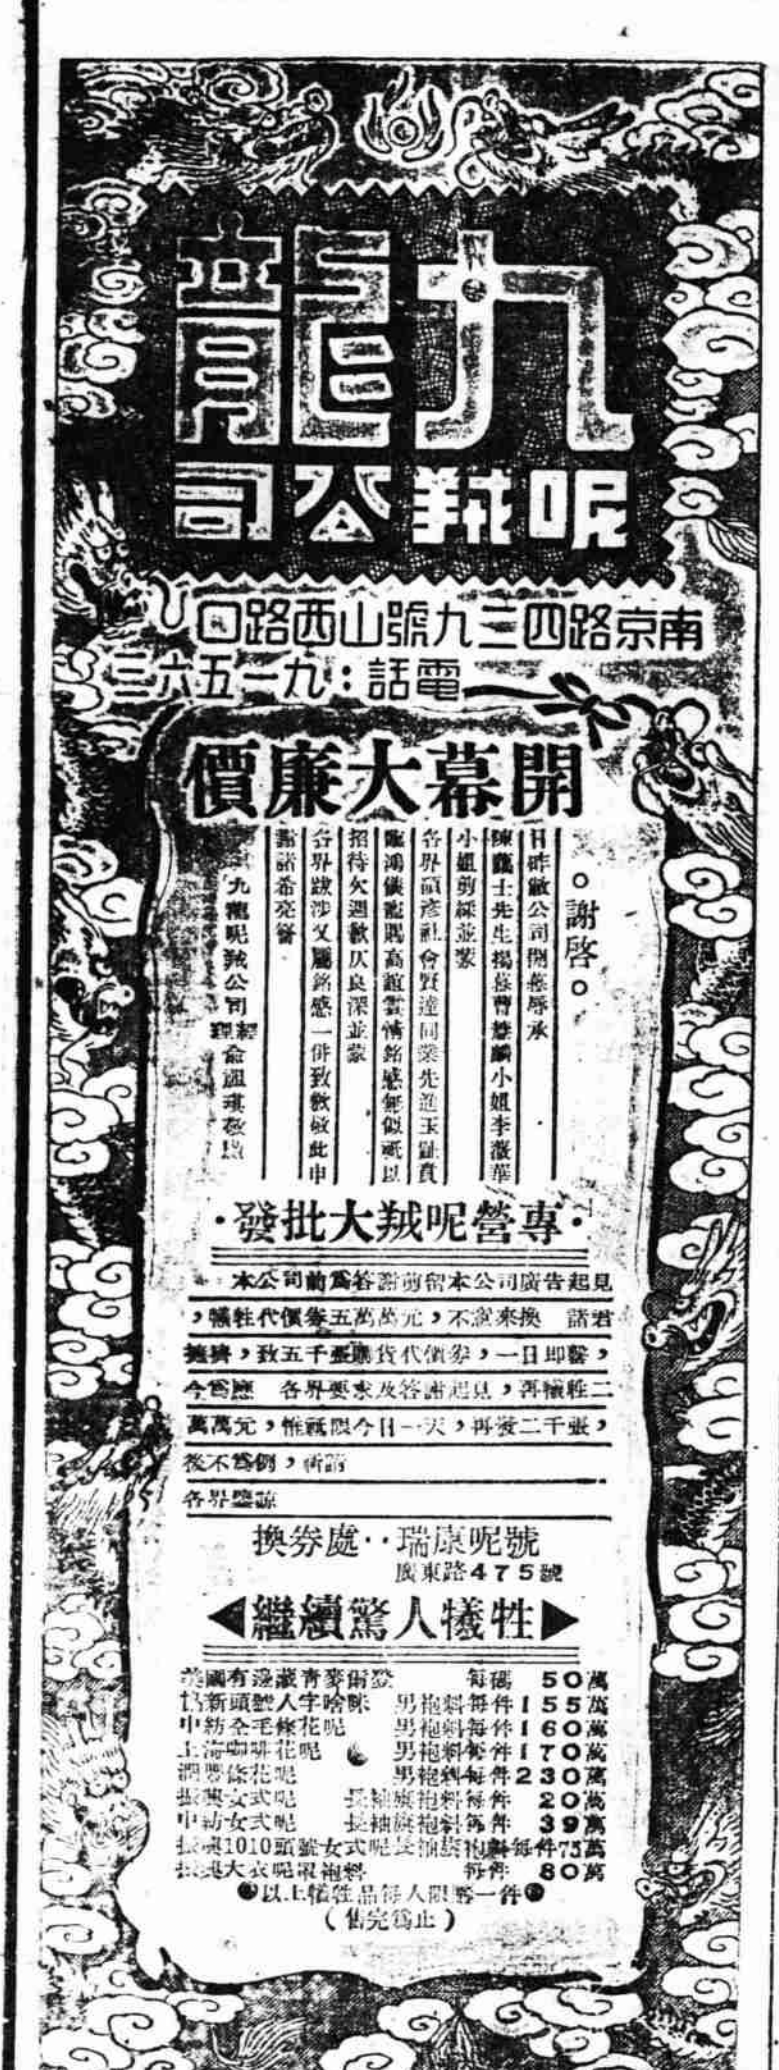 九龍
呢羢公司
南京路四三九號山西路口
電話：九一五六三
開幕大廉價
。謝啓。
日昨敝公司開幕辱承
陳藎士先生揭幕曹慧麟小姐李薇華
小姐剪綵並蒙
各界碩彥社會賢達同業先進玉趾賁
臨鴻儀寵賜高誼雲情銘感無似祇以
招待欠週歉仄良深並蒙
各界跋涉又屬銘感一併致歉敬此申
謝諸希亮詧
九龍呢羢公司經理俞
·專營呢羢大批發·
本公司前爲答謝剪留本公司廣告起見
，犧牲代價券五萬萬元，不意來換　諸君
擁擠，致五千張購貨代價券，一日即罄，
今爲應　各界要求及答謝起見，再犧牲二
萬萬元，惟祇限今日一天，再發二千張，
後不爲例，祈請
各界鑒諒
換券處··瑞康呢號
廣東路475號
◀繼續驚人犧牲▶
美國有邊藏青麥爾登　每碼　50萬
協新頭號人字啥味　男袍料每件155萬
中紡全毛條花呢　男袍料每件160萬
上海咖啡花呢　男袍料每件170萬
條花呢　男袍料每件230萬
振興女式呢　長袖旗袍料每件　20萬
中紡女式呢　長袖旗袍料每件　39萬
振興1010頭號女式呢長袖旗袍料每件75萬
振興大衣呢　袍料　每件　80萬
●以上犧牲品每人限購一件●
（售完爲止）